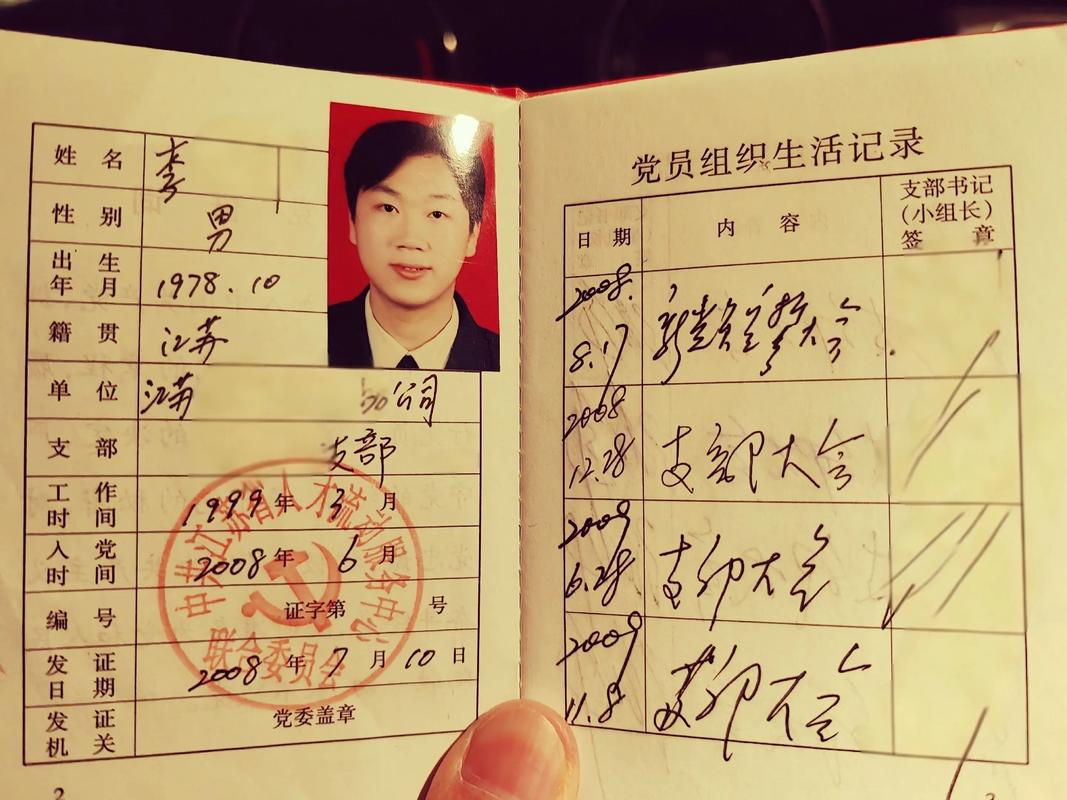 姓名 李
性别 男
出生年月 1978.10
籍贯 江苏
单位 江苏 公司
支部 支部
工作时间 1999年3月
入党时间 2008年6月
编号 证字第 号
发证日期 2008年7月10日
发证机关 党委盖章
中共江苏省人才流动服务中心
联合委员会
2
党员组织生活记录
日期 内容 支部书记
(小组长)
签章
2008.
8.17 新党员宣誓大会
2008
12.28 支部大会
2009
6.28 支部大会
2009
11.8 支部大会